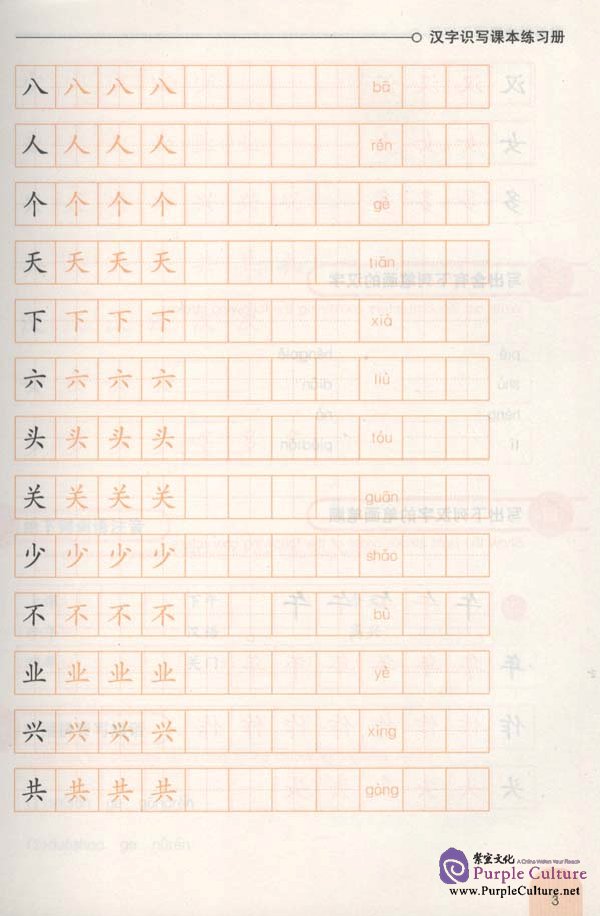 汉字识写课本练习册
八 八 八 八 bā
人 人 人 人 rén
个 个 个 个 gè
天 天 天 天 tiān
下 下 下 下 xià
六 六 六 六 liù
头 头 头 头 tóu
关 关 关 关 guān
少 少 少 少 shǎo
不 不 不 不 bù
业 业 业 业 yè
兴 兴 兴 兴 xìng
共 共 共 共 gòng
紫宝文化 A China Within Your Reach
Purple Culture
www.PurpleCulture.net
3